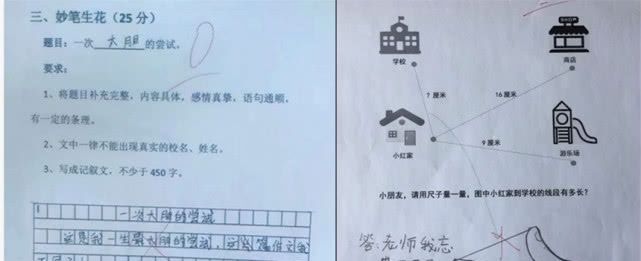 三、妙笔生花（25 分）
题目：一次 大胆 的尝试。
要求：
1、将题目补充完整，内容具体，感情真挚，语句通顺，
有一定的条理。
2、文中一律不能出现真实的校名、姓名。
3、写成记叙文，不少于 450 字。
一次大胆的尝试
这是我一生最大胆的尝试，这篇作文我
学校
SHOP
商店
? 厘米
16 厘米
9 厘米
小红家
游乐场
小朋友，请用尺子量一量，图中小红家到学校的线段有多长？
答：老师我忘